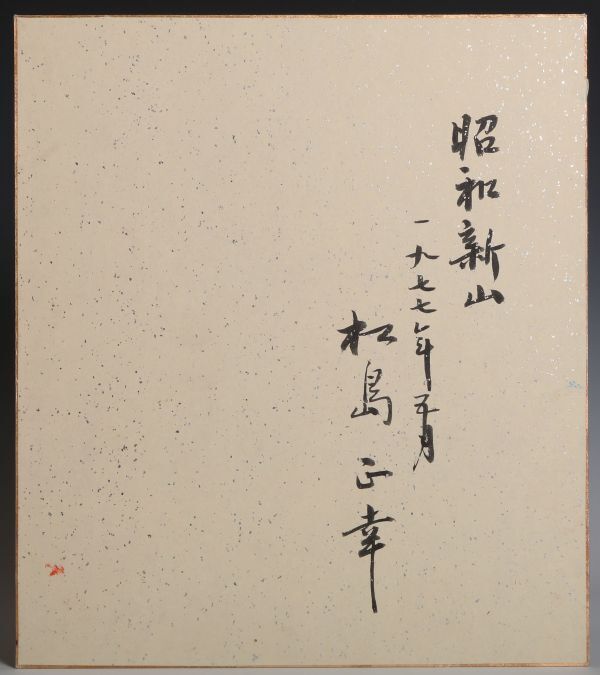 昭和新山
一九七七年五月
松島正幸